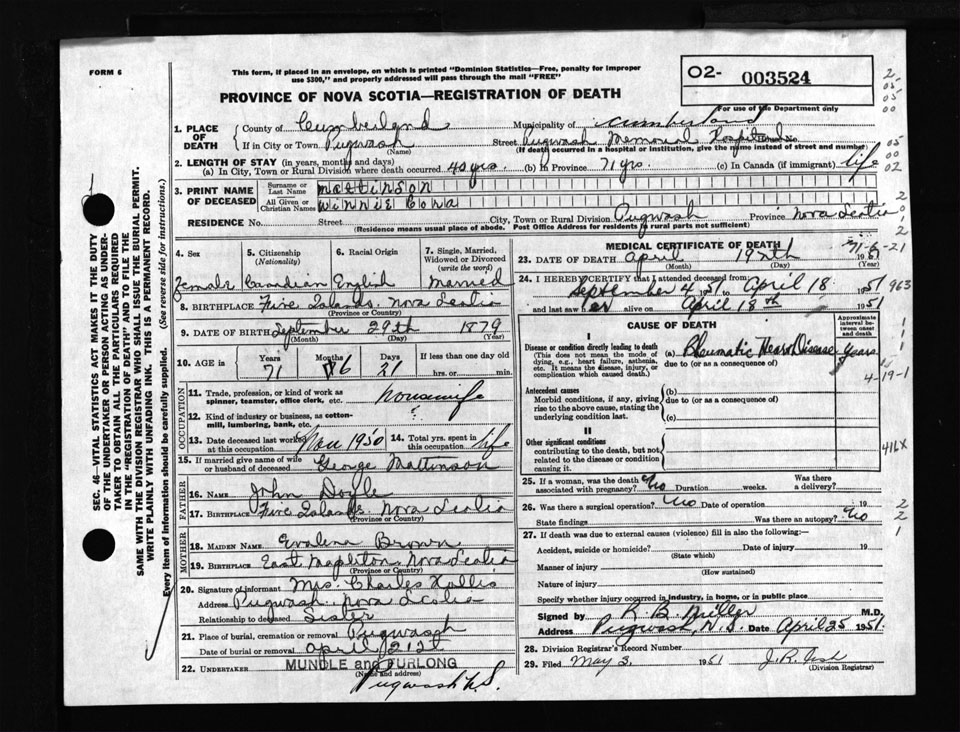 FORM 6
This form, if placed in an envelope, on which is printed "Dominion Statistics—Free, penalty for improper
use $300," and properly addressed will pass through the mail "FREE"
PROVINCE OF NOVA SCOTIA—REGISTRATION OF DEATH
02- 003524
For use of the Department only
1. PLACE OF DEATH
County of Cumberland Municipality of Cumberland
If in City or Town Pugwash Street Pugwash Memorial Hospital No.
(Name) (If death occurred in a hospital or institution, give the name instead of street and number)
2. LENGTH OF STAY (in years, months and days)
(a) In City, Town or Rural Division where death occurred 40 yrs. (b) in Province 71 yrs. (c) in Canada (if immigrant) life
3. PRINT NAME OF DECEASED
Surname or Last Name Mattinson
All Given or Christian Names Winnie Cora
RESIDENCE No. Street City, Town or Rural Division Pugwash Province Nova Scotia
(Residence means usual place of abode. Post Office Address for residents in rural parts not sufficient)
4. Sex 5. Citizenship (Nationality) 6. Racial Origin 7. Single, Married, Widowed or Divorced (write the word)
Female Canadian English Married
8. BIRTHPLACE Five Islands. Nova Scotia
(Province or Country)
9. DATE OF BIRTH September 29th 1879
(Month) (Day) (Year)
10. AGE in Years Months Days If less than one day old
71 6 21 hrs. or min.
OCCUPATION
11. Trade, profession, or kind of work as spinner, teamster, office clerk, etc. housewife
12. Kind of industry or business, as cotton-mill, lumbering, bank, etc.
13. Date deceased last worked at this occupation Nov 1950 14. Total yrs. spent in this occupation life
15. If married give name of wife or husband of deceased George Mattinson
FATHER
16. Name John Doyle
17. Birthplace Five Islands. Nova Scotia
(Province or Country)
MOTHER
18. MAIDEN NAME Evalena Brown
19. BIRTHPLACE East Mapleton. Nova Scotia
(Province or Country)
20. Signature of informant Mrs. Charles Hollis
Address Pugwash. Nova Scotia
Relationship to deceased Sister
21. Place of burial, cremation or removal Pugwash
Date of burial or removal April 21st
22. UNDERTAKER MUNDLE and FURLONG
(Name and address)
Pugwash N.S.
MEDICAL CERTIFICATE OF DEATH
71-6-21
23. DATE OF DEATH April 19th 1951
(Month) (Day) (Year)
24. I HEREBY CERTIFY that I attended deceased from
September 4 1951 to April 18 1951 963
and last saw her alive on April 18th 1951
CAUSE OF DEATH
Approximate interval between onset and death
I
Disease or condition directly leading to death (a) Rheumatic Heart Disease years
(This does not mean the mode of dying, e.g., heart failure, asthenia, etc. It means the disease, injury, or complication which caused death.)
due to (or as a consequence of)
4-19-1
Antecedent causes
Morbid conditions, if any, giving rise to the above cause, stating the underlying condition last.
(b)
due to (or as a consequence of)
(c)
II
Other significant conditions
contributing to the death, but not related to the disease or condition causing it.
416X
25. If a woman, was the death associated with pregnancy? No Duration weeks. Was there a delivery?
26. Was there a surgical operation? No Date of operation 19
State findings Was there an autopsy? No
27. If death was due to external causes (violence) fill in also the following:—
Accident, suicide or homicide? Date of injury 19
(State which)
Manner of injury
(How sustained)
Nature of injury
Specify whether injury occurred in industry, in home, or in public place
Signed by K. B. Miller M.D.
Address Pugwash, N.S. Date April 25 1951.
28. Division Registrar's Record Number
29. Filed May 3, 1951
(Division Registrar)
SEC. 46—VITAL STATISTICS ACT MAKES IT THE DUTY
OF THE UNDERTAKER OR PERSON ACTING AS UNDER-
TAKER TO OBTAIN ALL THE PARTICULARS REQUIRED
IN THE "REGISTRATION OF DEATH" AND TO FILE THE
SAME WITH THE DIVISION REGISTRAR WHO SHALL ISSUE THE BURIAL PERMIT.
WRITE PLAINLY WITH UNFADING INK. THIS IS A PERMANENT RECORD.
Every item of information should be carefully supplied. (See reverse side for instructions.)